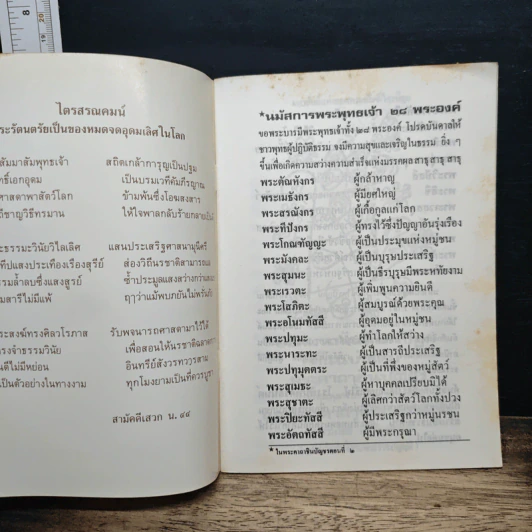 8
19
20
ไตรสรณคมน์
ระรัตนตรัยเป็นของหมดจดอุดมเลิศในโลก
สัมมาสัมพุทธเจ้า สถิตเกล้าการุญเป็นปฐม
ทธิ์เอกอุดม เป็นบรมเวทีคัมภีรญาณ
ศาสดาพาสัตว์โลก ข้ามพ้นซึ่งโอฆสงสาร
ถีชาญวิธีทรมาน ให้ใจพาลกลับร้าย
ระธรรมะวินัยวิไลเลิศ แสนประเสริฐศาสนามุนีศรี
ทีปแสงประเทืองเรืองสุรีย์ ส่องวิถีนรชาติ
รมล้ำลบซึ่งแสงสูรย์ ซ้ำประมูลแสงสว่าง
สามารีไม่มีแพ้ ฤาว่าแม้พบภยันไม่พรั่น
ระสงฆ์ทรงศิลวโรภาส รับพจนารถศาสดามาไว้ได้
รงจำธรรมวินัย เพื่อสอนให้นรชาติ
นดีไม่มีหย่อน อินทรีย์สังวร
เป็นตัวอย่างในทางงาม ทุกโมงยามเป็นที่ควรบูชา
สามัคคีเสวก น. ๙๔
*นมัสการพระพุทธเจ้า ๒๘ พระองค์
ขอพระบารมีพระพุทธเจ้าทั้ง ๒๘ พระองค์ โปรดบันดาลให้
ชาวพุทธผู้ปฏิบัติธรรม จงมีความสุขและเจริญในธรรม ยิ่ง ๆ
ขึ้นเพื่อเกิดความสว่างความสำเร็จแห่งมรรคผล สาธุ สาธุ สาธุ
พระตัณหังกร ผู้กล้าหาญ
พระเมธังกร ผู้มียศใหญ่
พระสรณังกร ผู้เกื้อกูลแก่โลก
พระทีปังกร ผู้ทรงไว้ซึ่งปัญญาอันรุ่งเรือง
พระโกณฑัญญะ ผู้เป็นประมุขแห่งหมู่ชน
พระมังคละ ผู้เป็นบุรุษประเสริฐ
พระสุมนะ ผู้เป็นธีรบุรุษมีพระหทัยงาม
พระเรวตะ ผู้เพิ่มพูนความยินดี
พระโสภิตะ ผู้สมบูรณ์ด้วยพระคุณ
พระอโนมทัสสี ผู้อุดมอยู่ในหมู่ชน
พระปทุมะ ผู้ทำโลกให้สว่าง
พระนาระทะ ผู้เป็นสารถีประเสริฐ
พระปทุมุตตระ ผู้เป็นที่พึ่งของหมู่สัตว์
พระสุเมธะ ผู้หาบุคคลเปรียบมิได้
พระสุชาตะ ผู้เลิศกว่าสัตว์โลกทั้งปวง
พระปิยะทัสสี ผู้ประเสริฐกว่าหมู่นรชน
พระอัตถทัสสี ผู้มีพระกรุณา
* ในพระคาถาชินบัญชรตอนที่ ๒